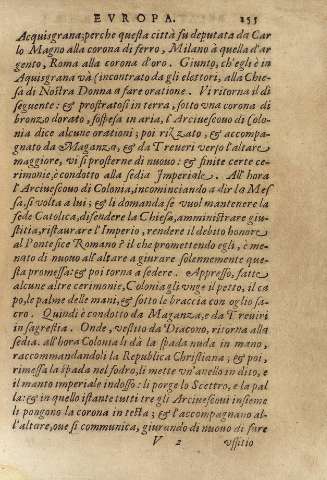 EVROPA. 255
Acquisgrana: perche questa città fu deputata da Car
lo Magno alla corona di ferro, Milano à quella d'ar
gento, Roma alla corona d'oro. Giunto, ch'egli è in
Aquisgrana và (incontrato da gli elettori, alla Chie-
sa di Nostra Donna a fare oratione. Vi ritorna il dì
seguente: & prostratosi in terra, sotto vna corona di
bronzo dorato, sospesa in aria, l'Arciuescouo di Colo-
nia dice alcune orationi; poi rizzato, & accompa-
gnato da Maganza, & da Treueri verso l'altare
maggiore, vi si prosterne di nuouo: & finite certe ce-
rimonie, è condotto alla sedia Imperiale. All'hora
l'Arciuescouo di Colonia, incominciando a dir la Mes
sa, si volta a lui; & li domanda se vuol mantenere la
fede Catolica, difendere la Chiesa, amministrare giu-
stitia, ristaurare l'Imperio, rendere il debito honore
al Pontefice Romano? il che promettendo egli, è me-
nato di nuouo all'altare a giurare solennemente que-
sta promessa: & poi torna a sedere. Appresso, fatte
alcune altre cerimonie, Colonia gli vnge il petto, il ca
po, le palme delle mani, & sotto le braccia con oglio sa-
cro. Quindi è condotto da Maganza, e da Treuiri
in sagrestia. Onde, vestito da Diacono, ritorna alla
sedia. all'hora Colonia li dà la spada nuda in mano,
raccommandandoli la Republica Christiana; & poi,
rimessa la spada nel fodro, li mette vn'anello in dito, e
il manto imperiale indosso: li porge lo Scettro, e la pal
la: & in quello istante tutti tre gli Arciuescoui insieme
li pongono la corona in testa; & l'accompagnano al-
l'altare, oue si communica, giurando di nuouo di fare
V 2 vffitio